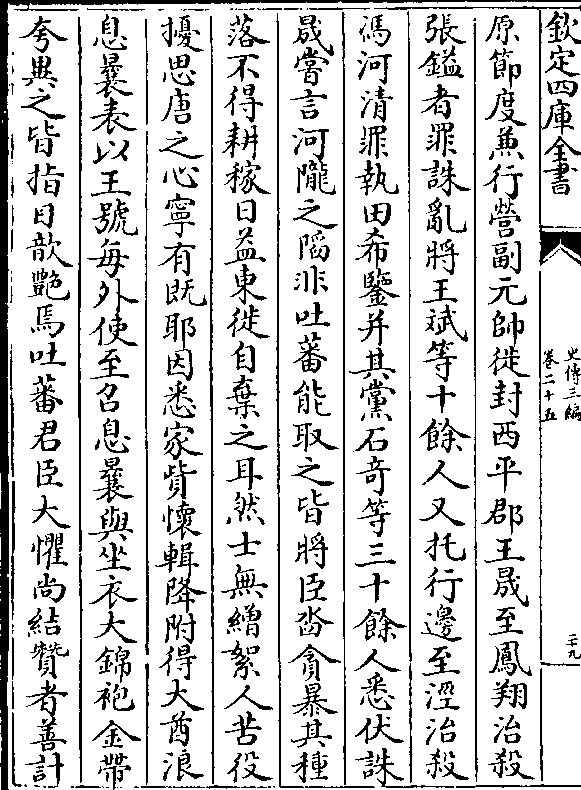 欽定四庫全書
史傳三編
卷二十五
二九
原節度兼行營副元帥徙封西平郡王晟至鳳翔治殺
張鎰者罪誅亂將王斌等十餘人又托行邊至涇治殺
馮河清罪執田希鑒并其黨石奇等三十餘人悉伏誅
晟嘗言河隴之䧟非吐蕃能取之皆將臣沓貪暴其種
落不得耕稼日益東徙自棄之耳然士無繒絮人苦役
擾思唐之心寧有既耶因悉家貲懷輯降附得大酋浪
息曩表以王號每外使至召息曩與坐衣大錦袍金帶
夸異之皆指目歆艷焉吐蕃君臣大懼尚結贊者善計